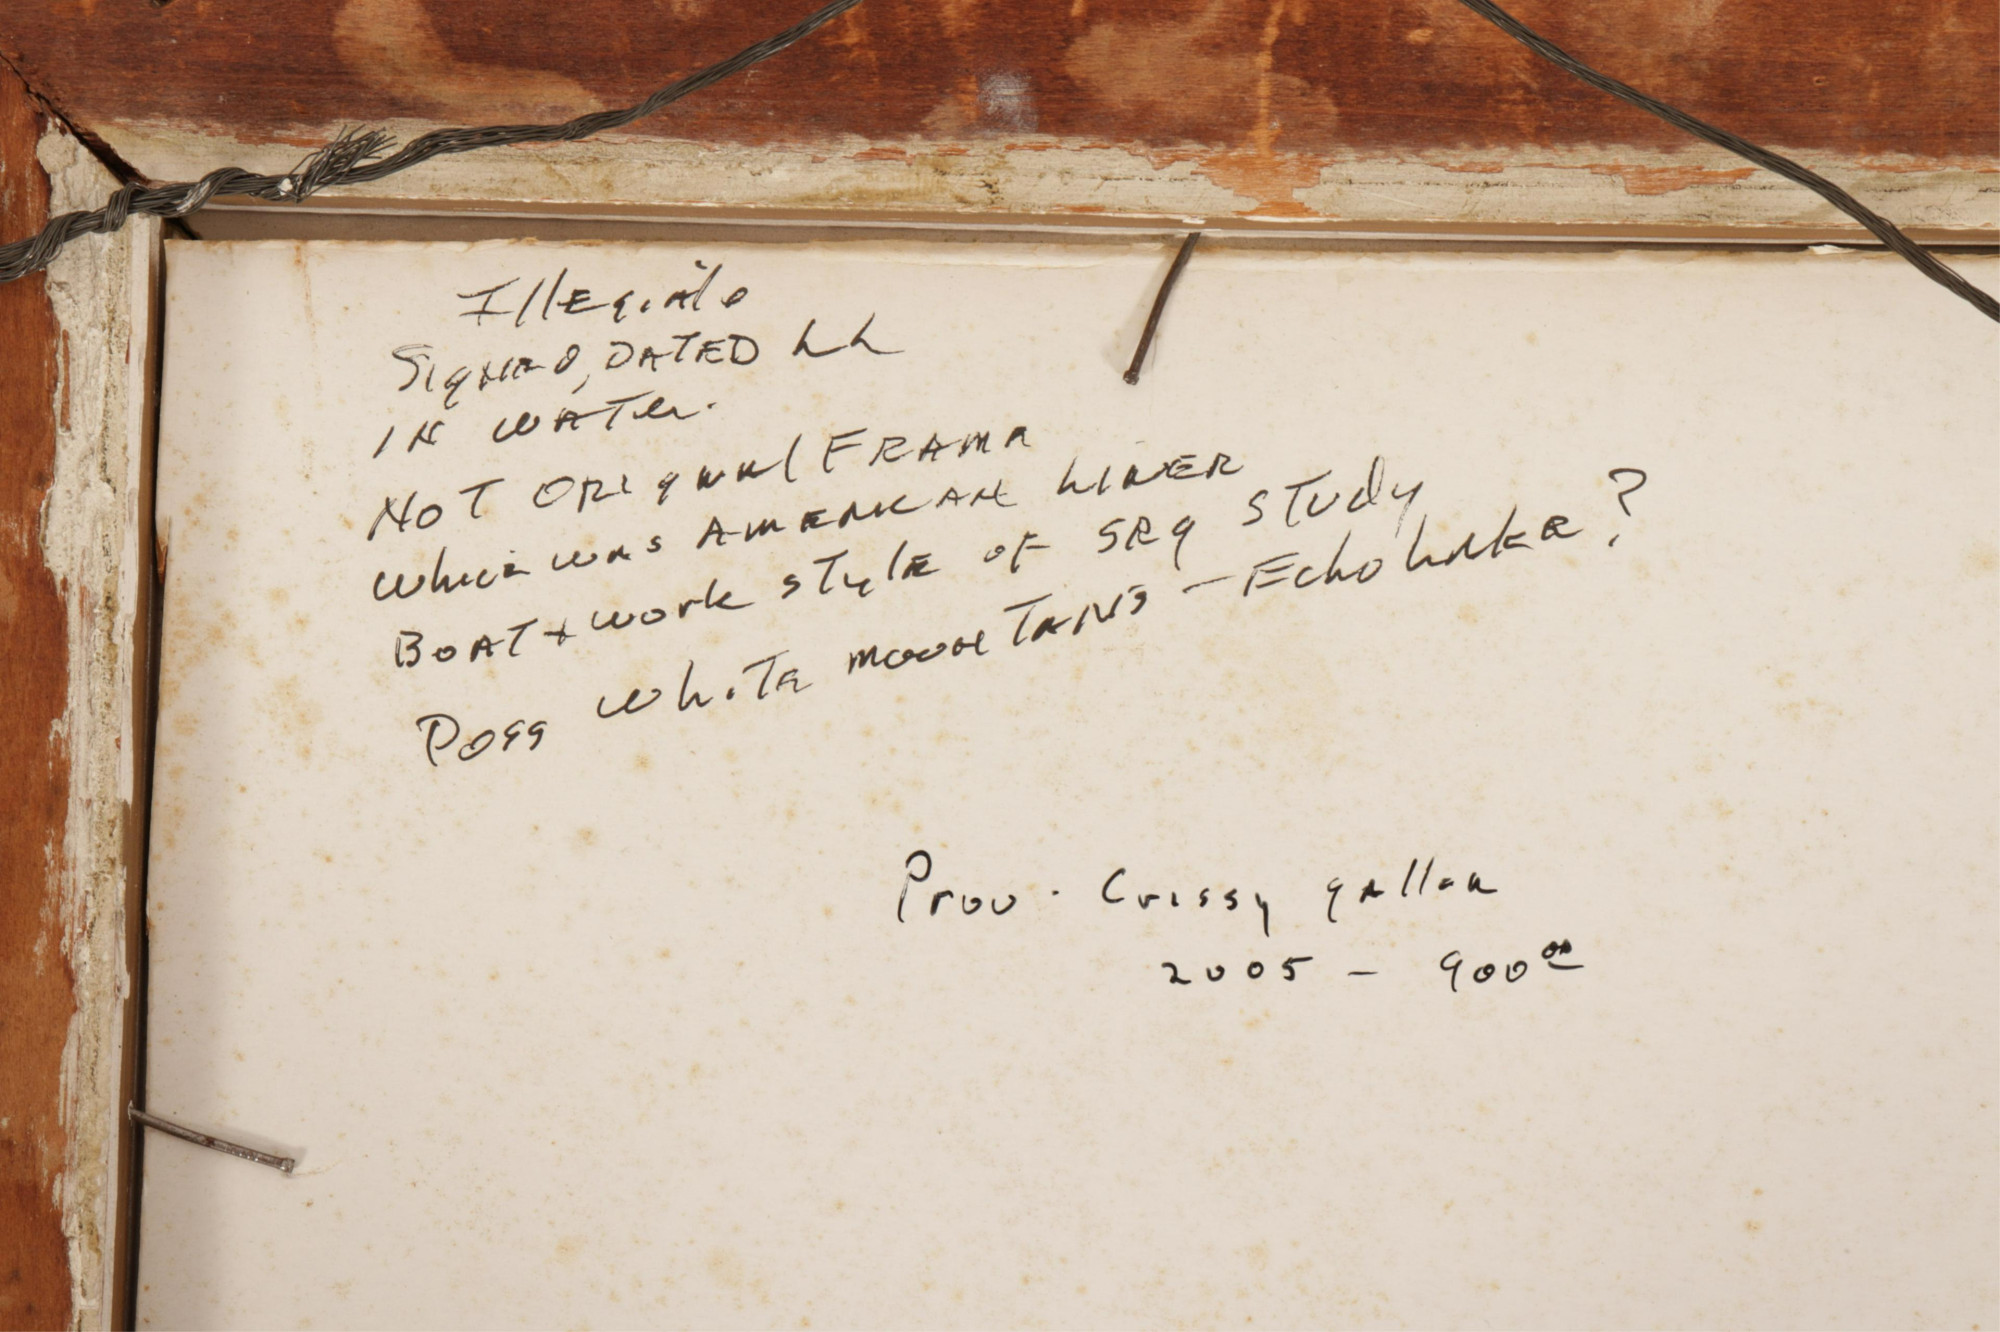 Illegible
Signed, DATED LL
IN WATER.
NOT ORIGINAL FRAME
Which was AMERICAN LINER
BOAT + work style OF SRG STUDY
Poss White mountains - Echo Lake?
Prov. Crissy gallery
2005 - 900 00